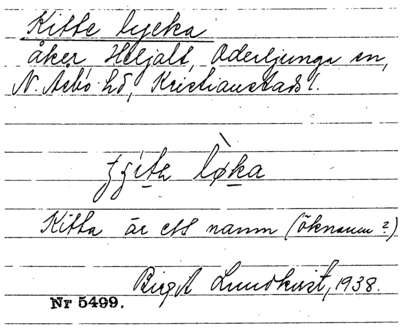 Kitte lycka
åker Heljalt, Oderljunga sn,
N. Åsbo hd, Kristianstads l.
Kitta är ett namn (öknamn?)
Birgit Lundkvist, 1938.
Nr 5499.